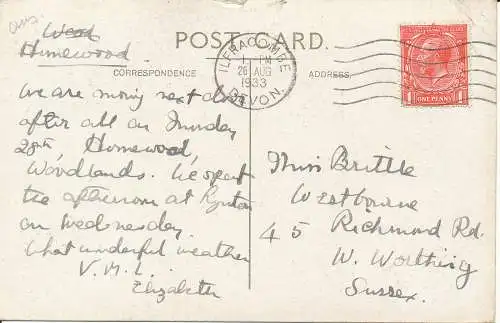 ans
Wood
Homewood.
POST CARD.
CORRESPONDENCE
ADDRESS.
ILFRACOMBE
1 PM
26 AUG
1933
DEVON.
ONE PENNY
We are moving next door
after all on Monday
28th, Homewood,
Woodlands. We spent
the afternoon at
on Wednesday.
What wonderful weather
V. M. L.
Elizabeth
Miss Brittle
Westbourne
45 Richmond Rd.
W. Worthing
Sussex.